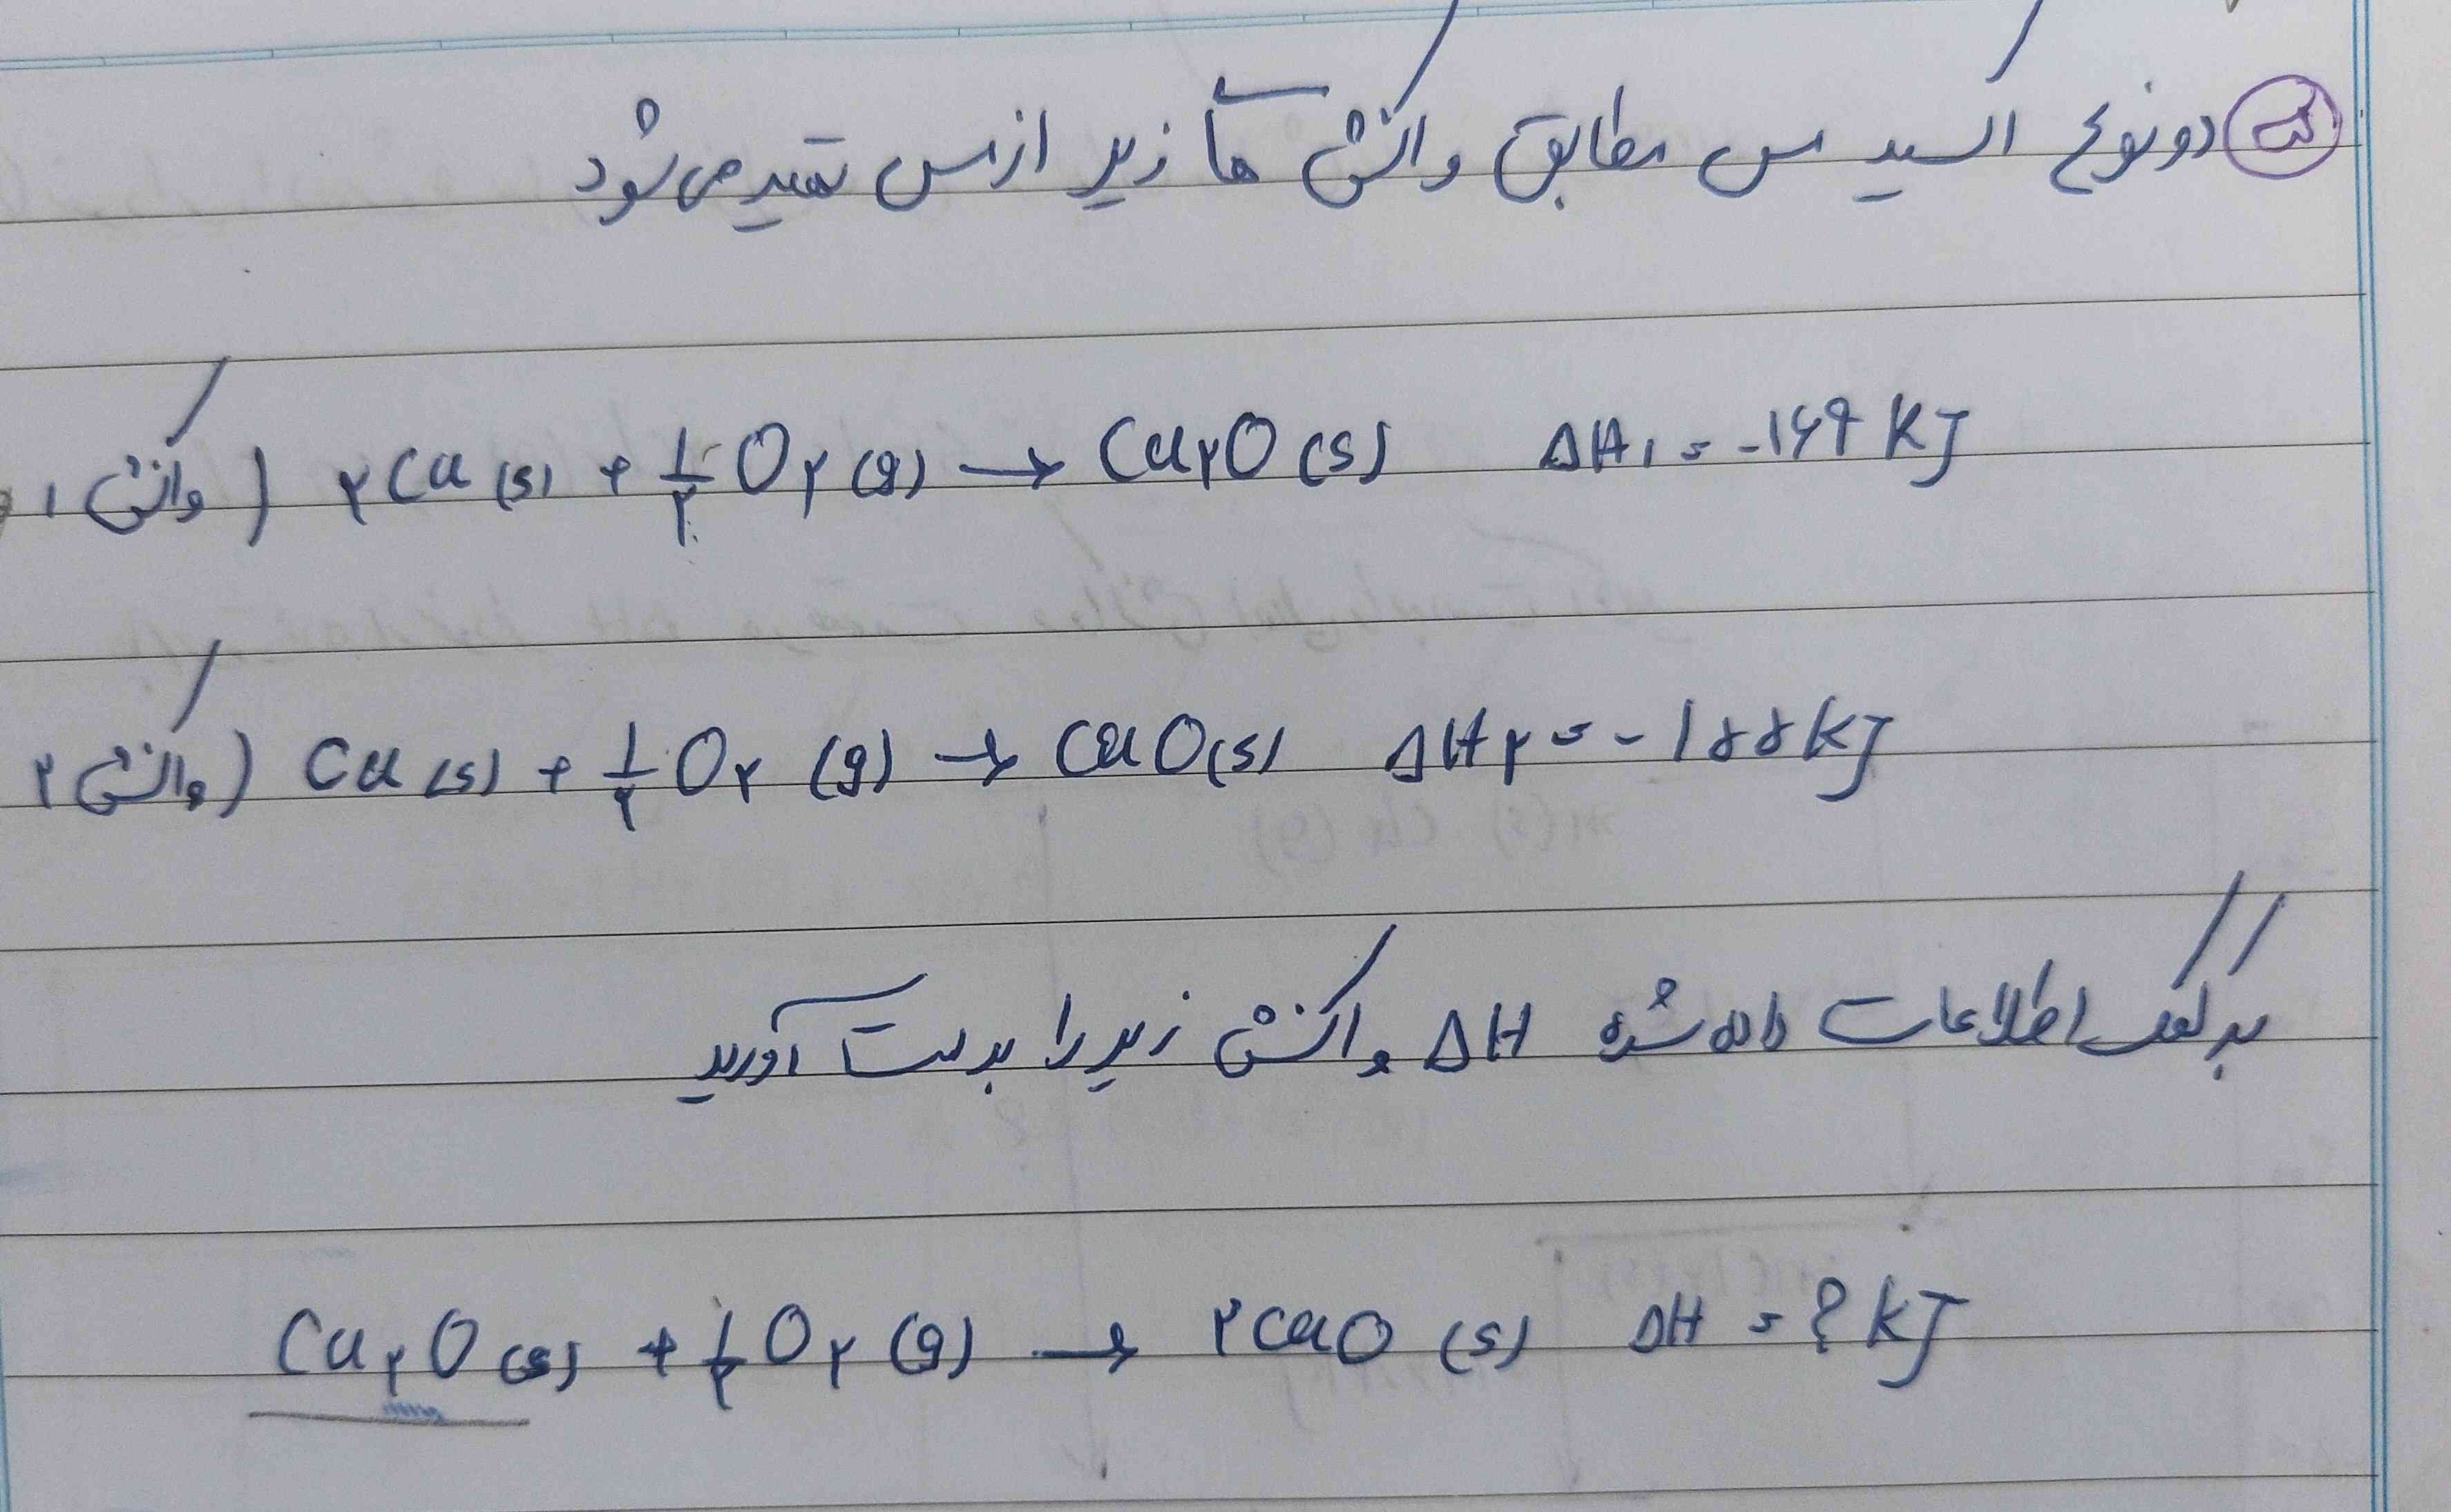 دو نوع اکسید مس مطابق واکنش های زیر از مس تهیه می شود
واکنش ۱) ۲Cu (s) + ۱/۲ O۲ (g) → Cu۲O (s) ΔH۱ = -۱۶۹ KJ
واکنش ۲) Cu (s) + ۱/۲ O۲ (g) → CuO (s) ΔH۲ = -۱۵۵ KJ
به کمک اطلاعات داده شده ΔH واکنش زیر را بدست آورید
Cu۲O (s) + ۱/۲ O۲ (g) → ۲CuO (s) ΔH = ? KJ